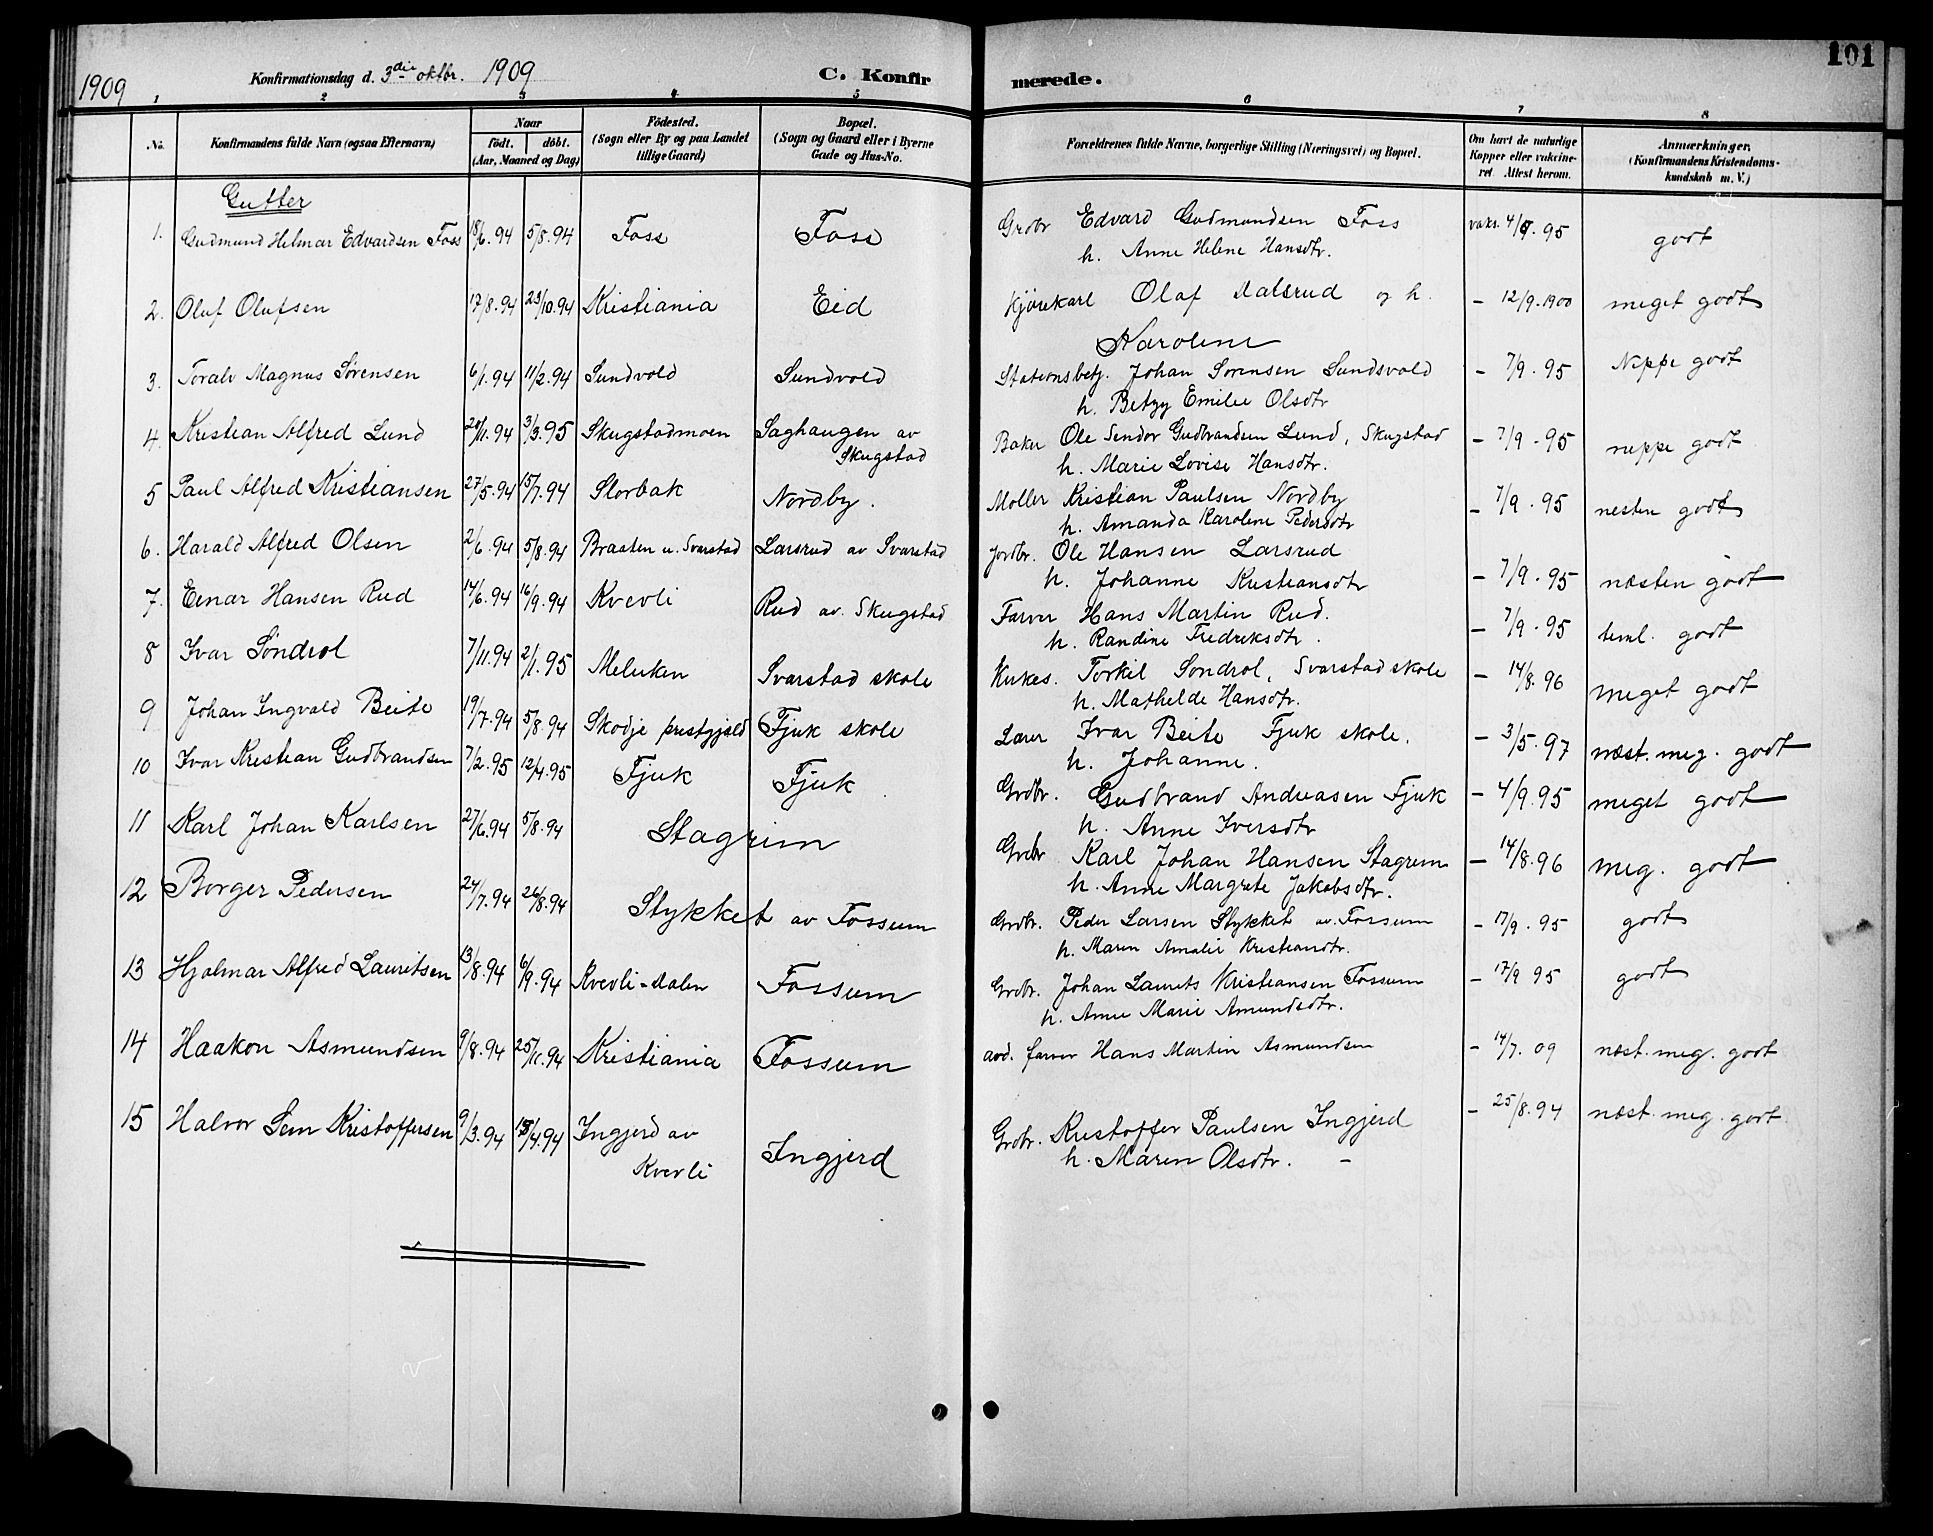 1909
Konfirmationsdag d. 3die oktbr. 1909
C. Konfirmerede.
101
1 2 3 4 5 6 7 8
No.
Konfirmandens fulde Navn (ogsaa Efternavn)
Naar
födt. döbt.
(Aar, Maaned og Dag)
Födested.
(Sogn eller By og paa Landet
tillige Gaard)
Bopæl.
(Sogn og Gaard eller i Byerne
Gade og Hus-No.
Forældrenes fulde Navne, borgerlige Stilling (Næringsvei) og Bopæl.
Om havt de naturlige
Kopper eller vakcine-
ret. Attest herom.
Anmærkninger.
(Konfirmandens Kristendoms-
kundskab m. V.)
Gutter
1. Gudmund Helmar Edvardsen Foss 18/6.94 5/8.94 Foss Foss Grdbr Edvard Gudmundsen Foss vaks. 4/9.95 godt
h. Anne Helene Hansdtr.
2. Oluf Olufsen 17/8.94 23/10.94 Kristiania Eid Kjörekarl Olaf Dalsrud og h. - 12/9.1900 meget godt
Karoline
3. Toralv Magnus Sørensen 6/1.94 11/2.94 Sundvold Sundvold Stationsbetj. Johan Sörensen Sundsvold - 7/9.95 Neppe godt
h. Betzy Emilie Olsdtr
4. Kristian Alfred Lund 20/11.94 3/3.95 Skugstadmoen Saghaugen av Baker Ole Sendor Gudbrandsen Lund, Skugstad - 7/9.95 neppe godt
Skugstad h. Marie Lovise Hansdtr.
5 Paul Alfred Kristiansen 27/5.94 15/7.94 Storbak Nordby. Möller Kristian Paulsen Nordby - 7/9.95 nesten godt
h. Amanda Karoline Pedersdtr
6. Harald Alfred Olsen 2/6.94 5/8.94 Braaten u. Svarstad Larsrud av Svarstad Jordbr. Ole Hansen Larsrud - 7/9.95 næsten godt
h. Johanne Kristiansdtr
7. Einar Hansen Rud 14/6.94 16/9.94 Kvevli Rud av Skugstad Farver Hans Martin Rud. - 7/9.95 teml. godt
h. Randine Fredriksdtr.
8 Ivar Söndrol 7/11.94 2/1.95 Meluken Svarstad skole Kirkes. Torkil Söndrol, Svarstad skole - 14/8.96 meget godt
h. Mathilde Hansdtr.
9 Johan Ingvald Beite 19/7.94 5/8.94 Skodje prestgjeld Fjuk skole Lærer Ivar Beite Fjuk skole. - 3/5.97 næst. meg. godt
h. Johanne.
10 Ivar Kristian Gudbrandsen 7/2.95 12/4.95 Fjuk Fjuk Grdbr. Gudbrand Andreasen Fjuk - 4/9.95 meget godt
h. Anne Iversdtr
11 Karl Johan Karlsen 27/6.94 5/8.94 Stagrim Grdbr Karl Johan Hansen Stagrim - 14/8.96 meg. godt
h. Anne Margrete Jakobsdtr.
12 Borger Pedersen 24/7.94 26/8.94 Stykket av Fossum Grdbr. Peder Larsen Stykket av Fossum - 17/9.95 godt
h. Maren Amalie Kristiansdtr.
13 Hjalmar Alfred Lauritsen 13/8.94 6/9.94 Kvevli-dalen Fossum Grdbr. Johan Laurits Kristiansen Fossum - 17/9 95 godt
h. Anne Marie Amundsdtr.
14 Haakon Asmundsen 9/8.94 25/11.94 Kristiania Fossum avd. farver Hans Martin Asmundsen - 14/7.09 næst. meg. godt
15 Halvor Sem Kristoffersen 9/3.94 15/4.94 Ingjerd av Ingjerd Grdbr. Kristoffer Paulsen Ingjerd - 25/8.94 næst. meg. godt
Kvevli h. Maren Olsdtr. -